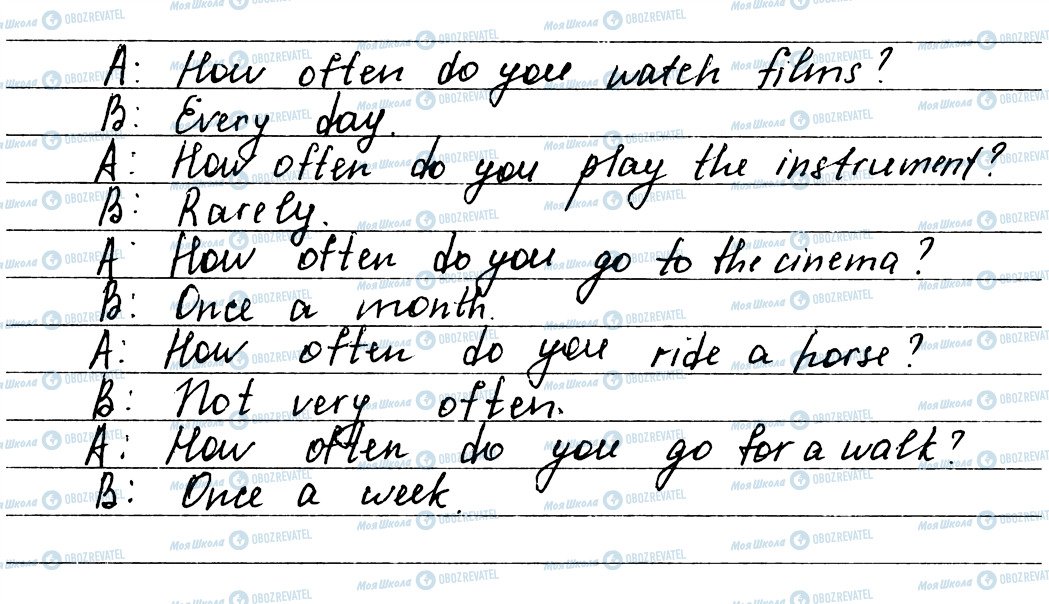 A: How often do you watch films?
B: Every day.
A: How often do you play the instrument?
B: Rarely.
A: How often do you go to the cinema?
B: Once a month.
A: How often do you ride a horse?
B: Not very often.
A: How often do you go for a walk?
B: Once a week.
МояШкола OBOZREVATEL